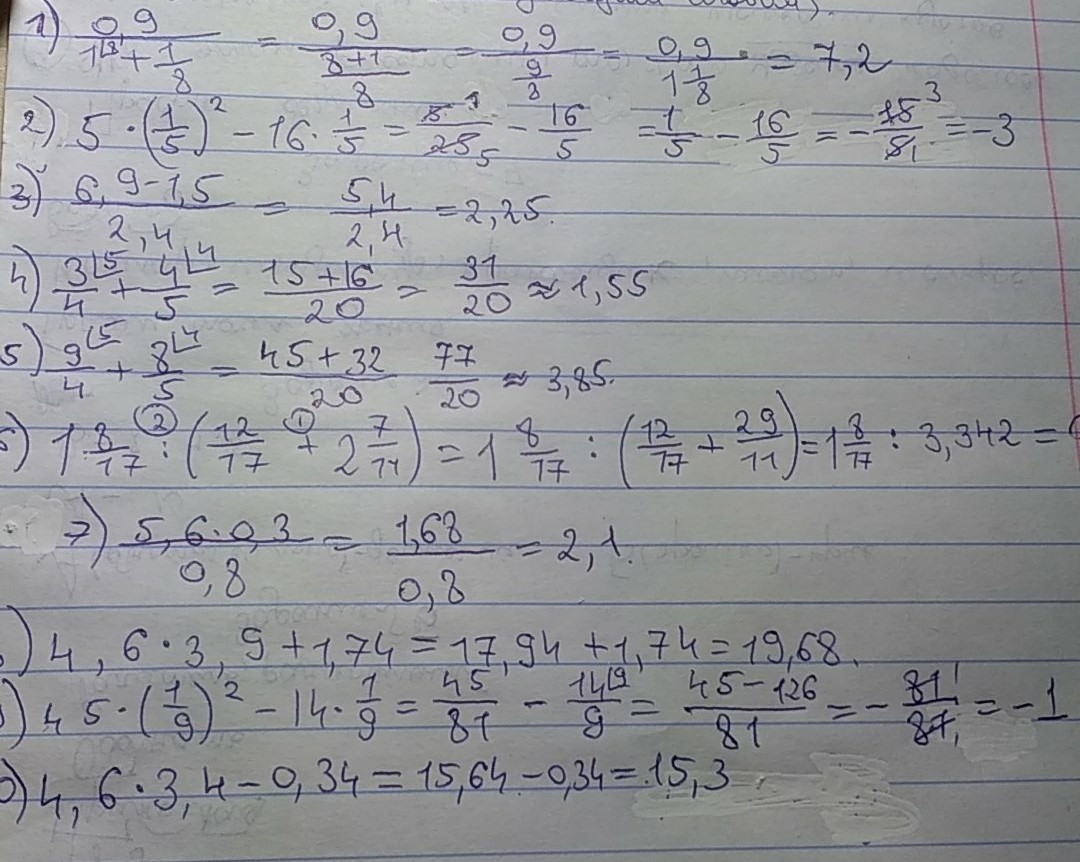 1) 0,9 / (1⌊8 + 1/8) = 0,9 / ((8+1)/8) = 0,9 / (9/8) = 0,9 / (1 1/8) = 7,2
2) 5 · (1/5)² − 16 · 1/5 = 5¹/25₅ − 16/5 = 1/5 − 16/5 = −15³/5₁ = −3
3) (6,9−1,5) / 2,4 = 5,4 / 2,4 = 2,25.
4) 3⌊5/4 + 4⌊4/5 = (15+16)/20 = 31/20 ≈ 1,55
5) 9⌊5/4 + 8⌊4/5 = (45+32)/20 77/20 ≈ 3,85.
) 1 8/17 ② : (12/17 ① + 2 7/11) = 1 8/17 : (12/17 + 29/11) = 1 8/17 : 3,342 =
7) (5,6·0,3) / 0,8 = 1,68 / 0,8 = 2,1.
) 4,6·3,9+1,74=17,94+1,74=19,68.
) 45·(1/9)² − 14·1/9 = 45/81 − 14⌊9/9 = (45−126)/81 = −81¹/81₁ = −1
) 4,6·3,4−0,34=15,64−0,34=15,3